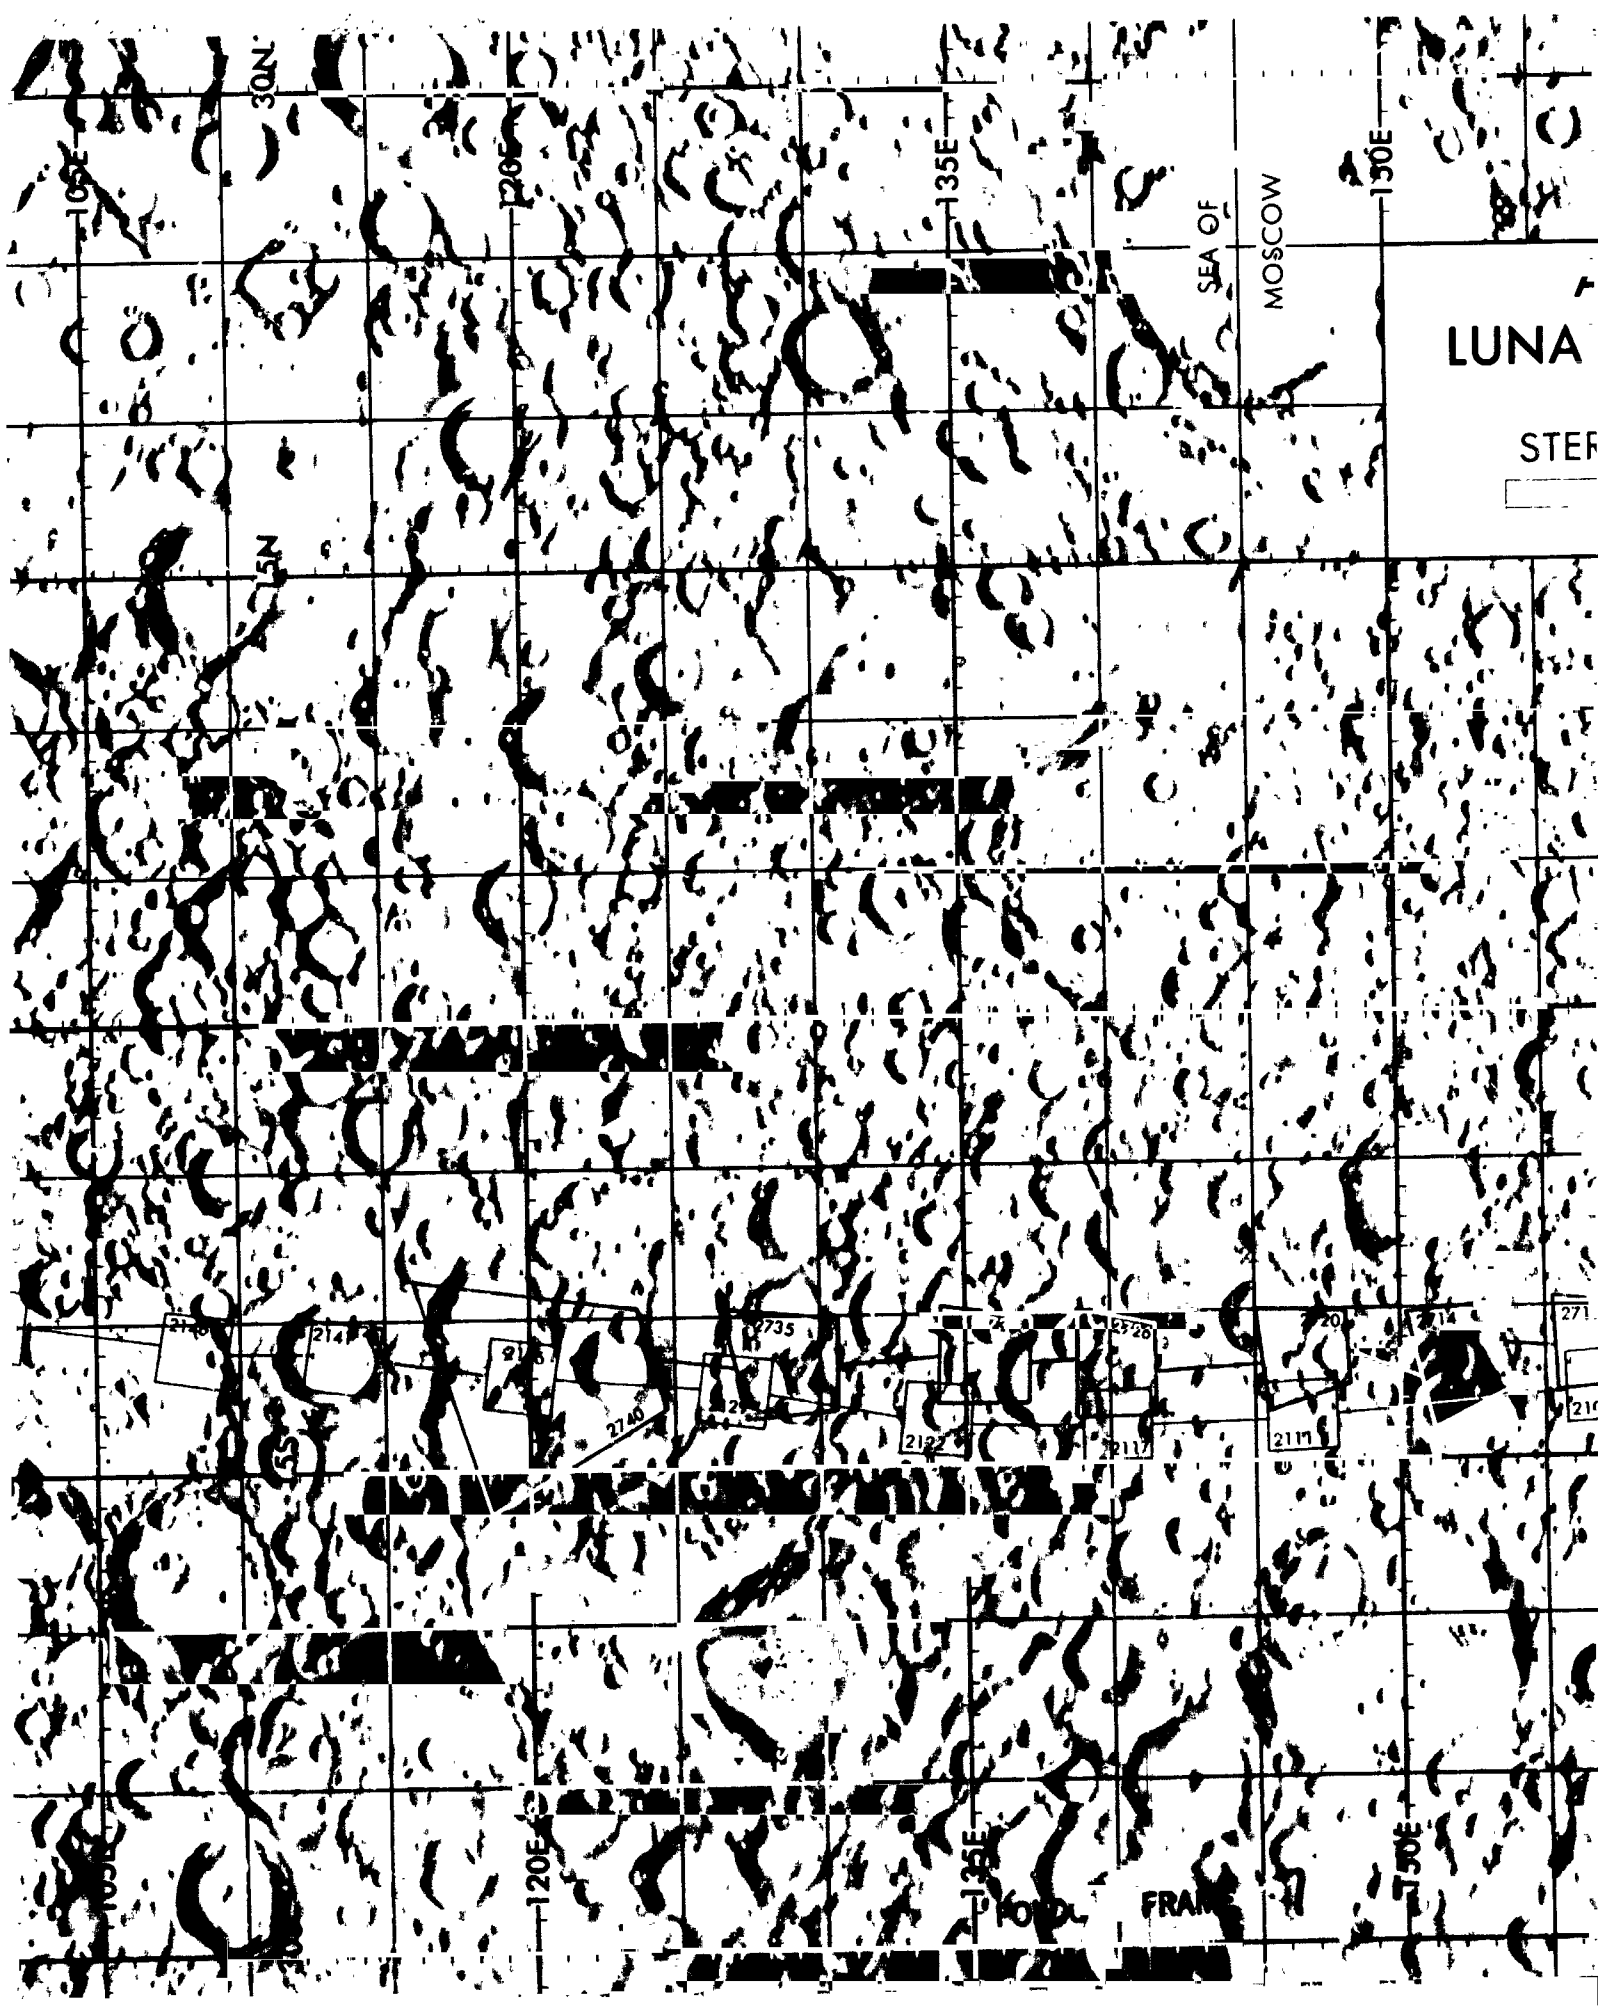 30N
105E
120E
135E
150E
SEA OF
MOSCOW
LUNA
STER
15N
2735
2720
2714
271
2740
2122
2117
2111
210
15S
105E
120E
135E
150E
FRAM